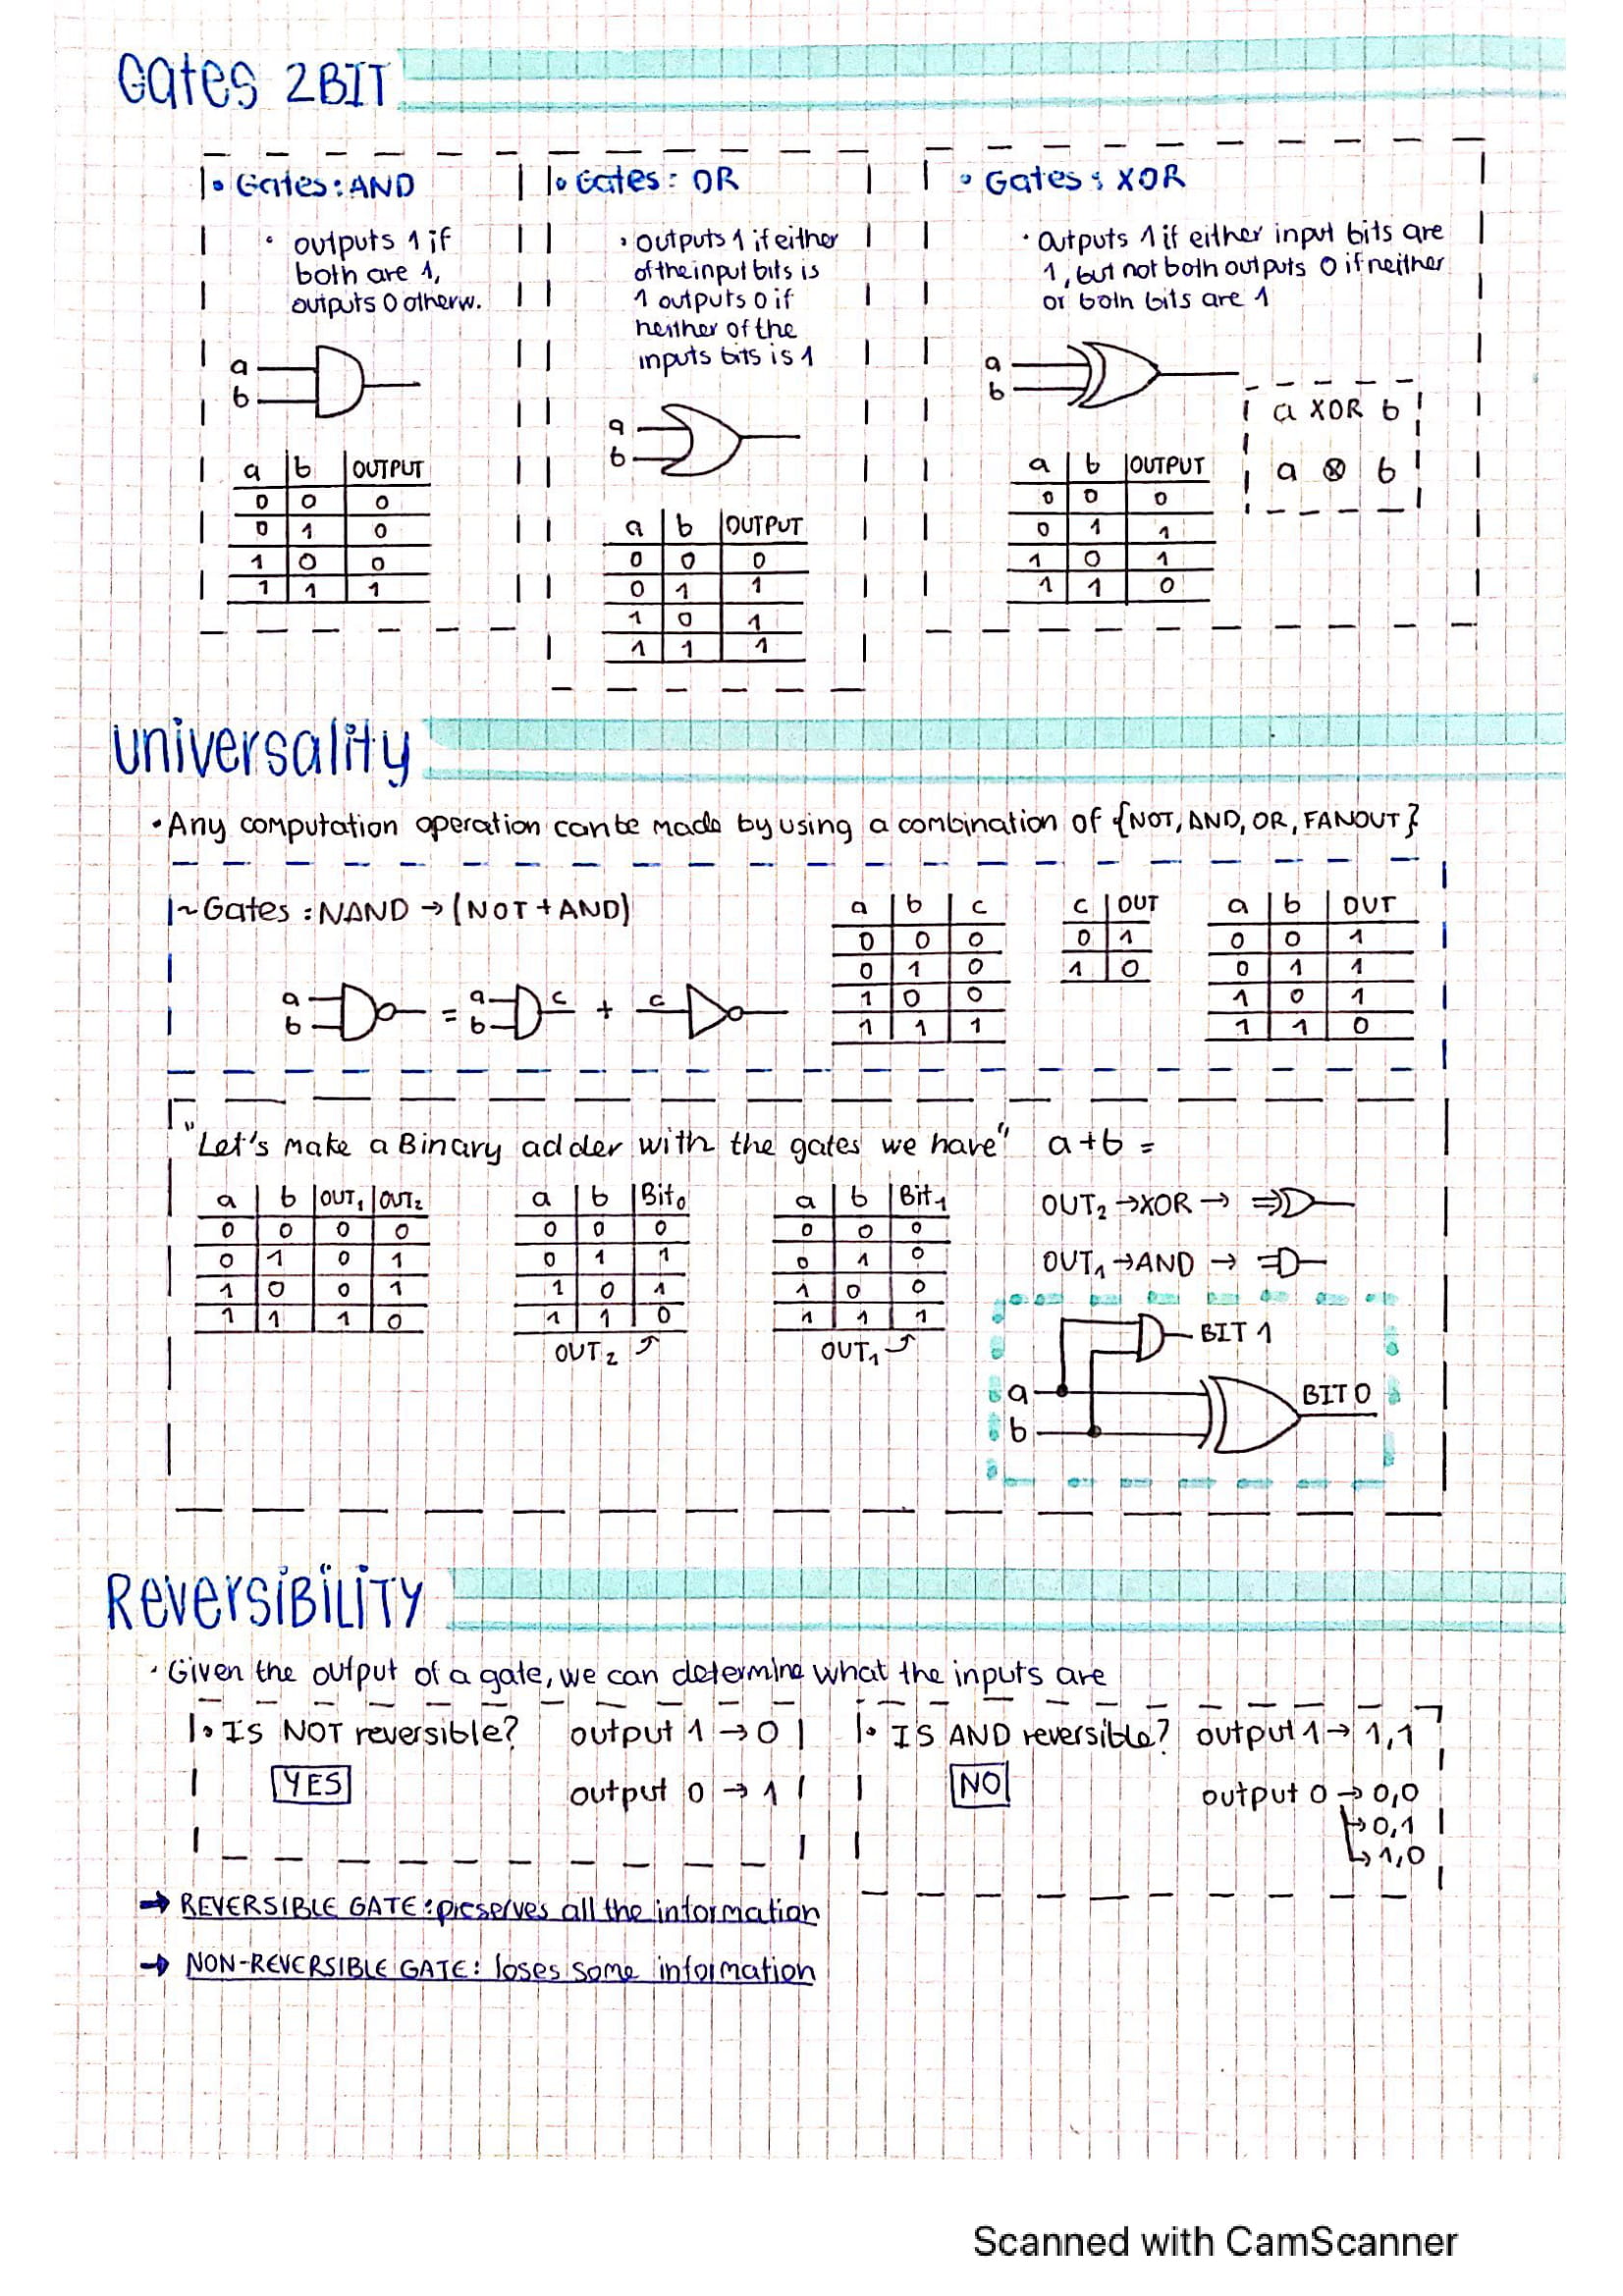 Gates 2BIT
• Gates: AND
• outputs 1 if
both are 1,
outputs 0 otherw.
a
b
a b OUTPUT
0 0 0
0 1 0
1 0 0
1 1 1
• Gates: OR
• outputs 1 if either
of the input bits is
1 outputs 0 if
neither of the
inputs bits is 1
a
b
a b OUTPUT
0 0 0
0 1 1
1 0 1
1 1 1
• Gates: XOR
• outputs 1 if either input bits are
1, but not both outputs 0 if neither
or both bits are 1
a
b
a XOR b
a ⊗ b
a b OUTPUT
0 0 0
0 1 1
1 0 1
1 1 0
Universality
• Any computation operation can be made by using a combination of {NOT, AND, OR, FANOUT}
~ Gates: NAND → (NOT + AND)
a b = a b c + c
a b c
0 0 0
0 1 0
1 0 0
1 1 1
c OUT
0 1
1 0
a b OUT
0 0 1
0 1 1
1 0 1
1 1 0
"Let's make a Binary adder with the gates we have" a+b =
a b OUT₁ OUT₂
0 0 0 0
0 1 0 1
1 0 0 1
1 1 1 0
a b Bit₀
0 0 0
0 1 1
1 0 1
1 1 0
OUT₂
a b Bit₁
0 0 0
0 1 0
1 0 0
1 1 1
OUT₁
OUT₂ → XOR →
OUT₁ → AND →
BIT 1
a
BIT 0
b
REVERSIBILITY
• Given the output of a gate, we can determine what the inputs are
• IS NOT reversible? output 1 → 0
YES
output 0 → 1
• IS AND reversible? output 1 → 1,1
NO
output 0 → 0,0
↳ 0,1
↳ 1,0
→ REVERSIBLE GATE: preserves all the information
→ NON-REVERSIBLE GATE: loses some information
Scanned with CamScanner